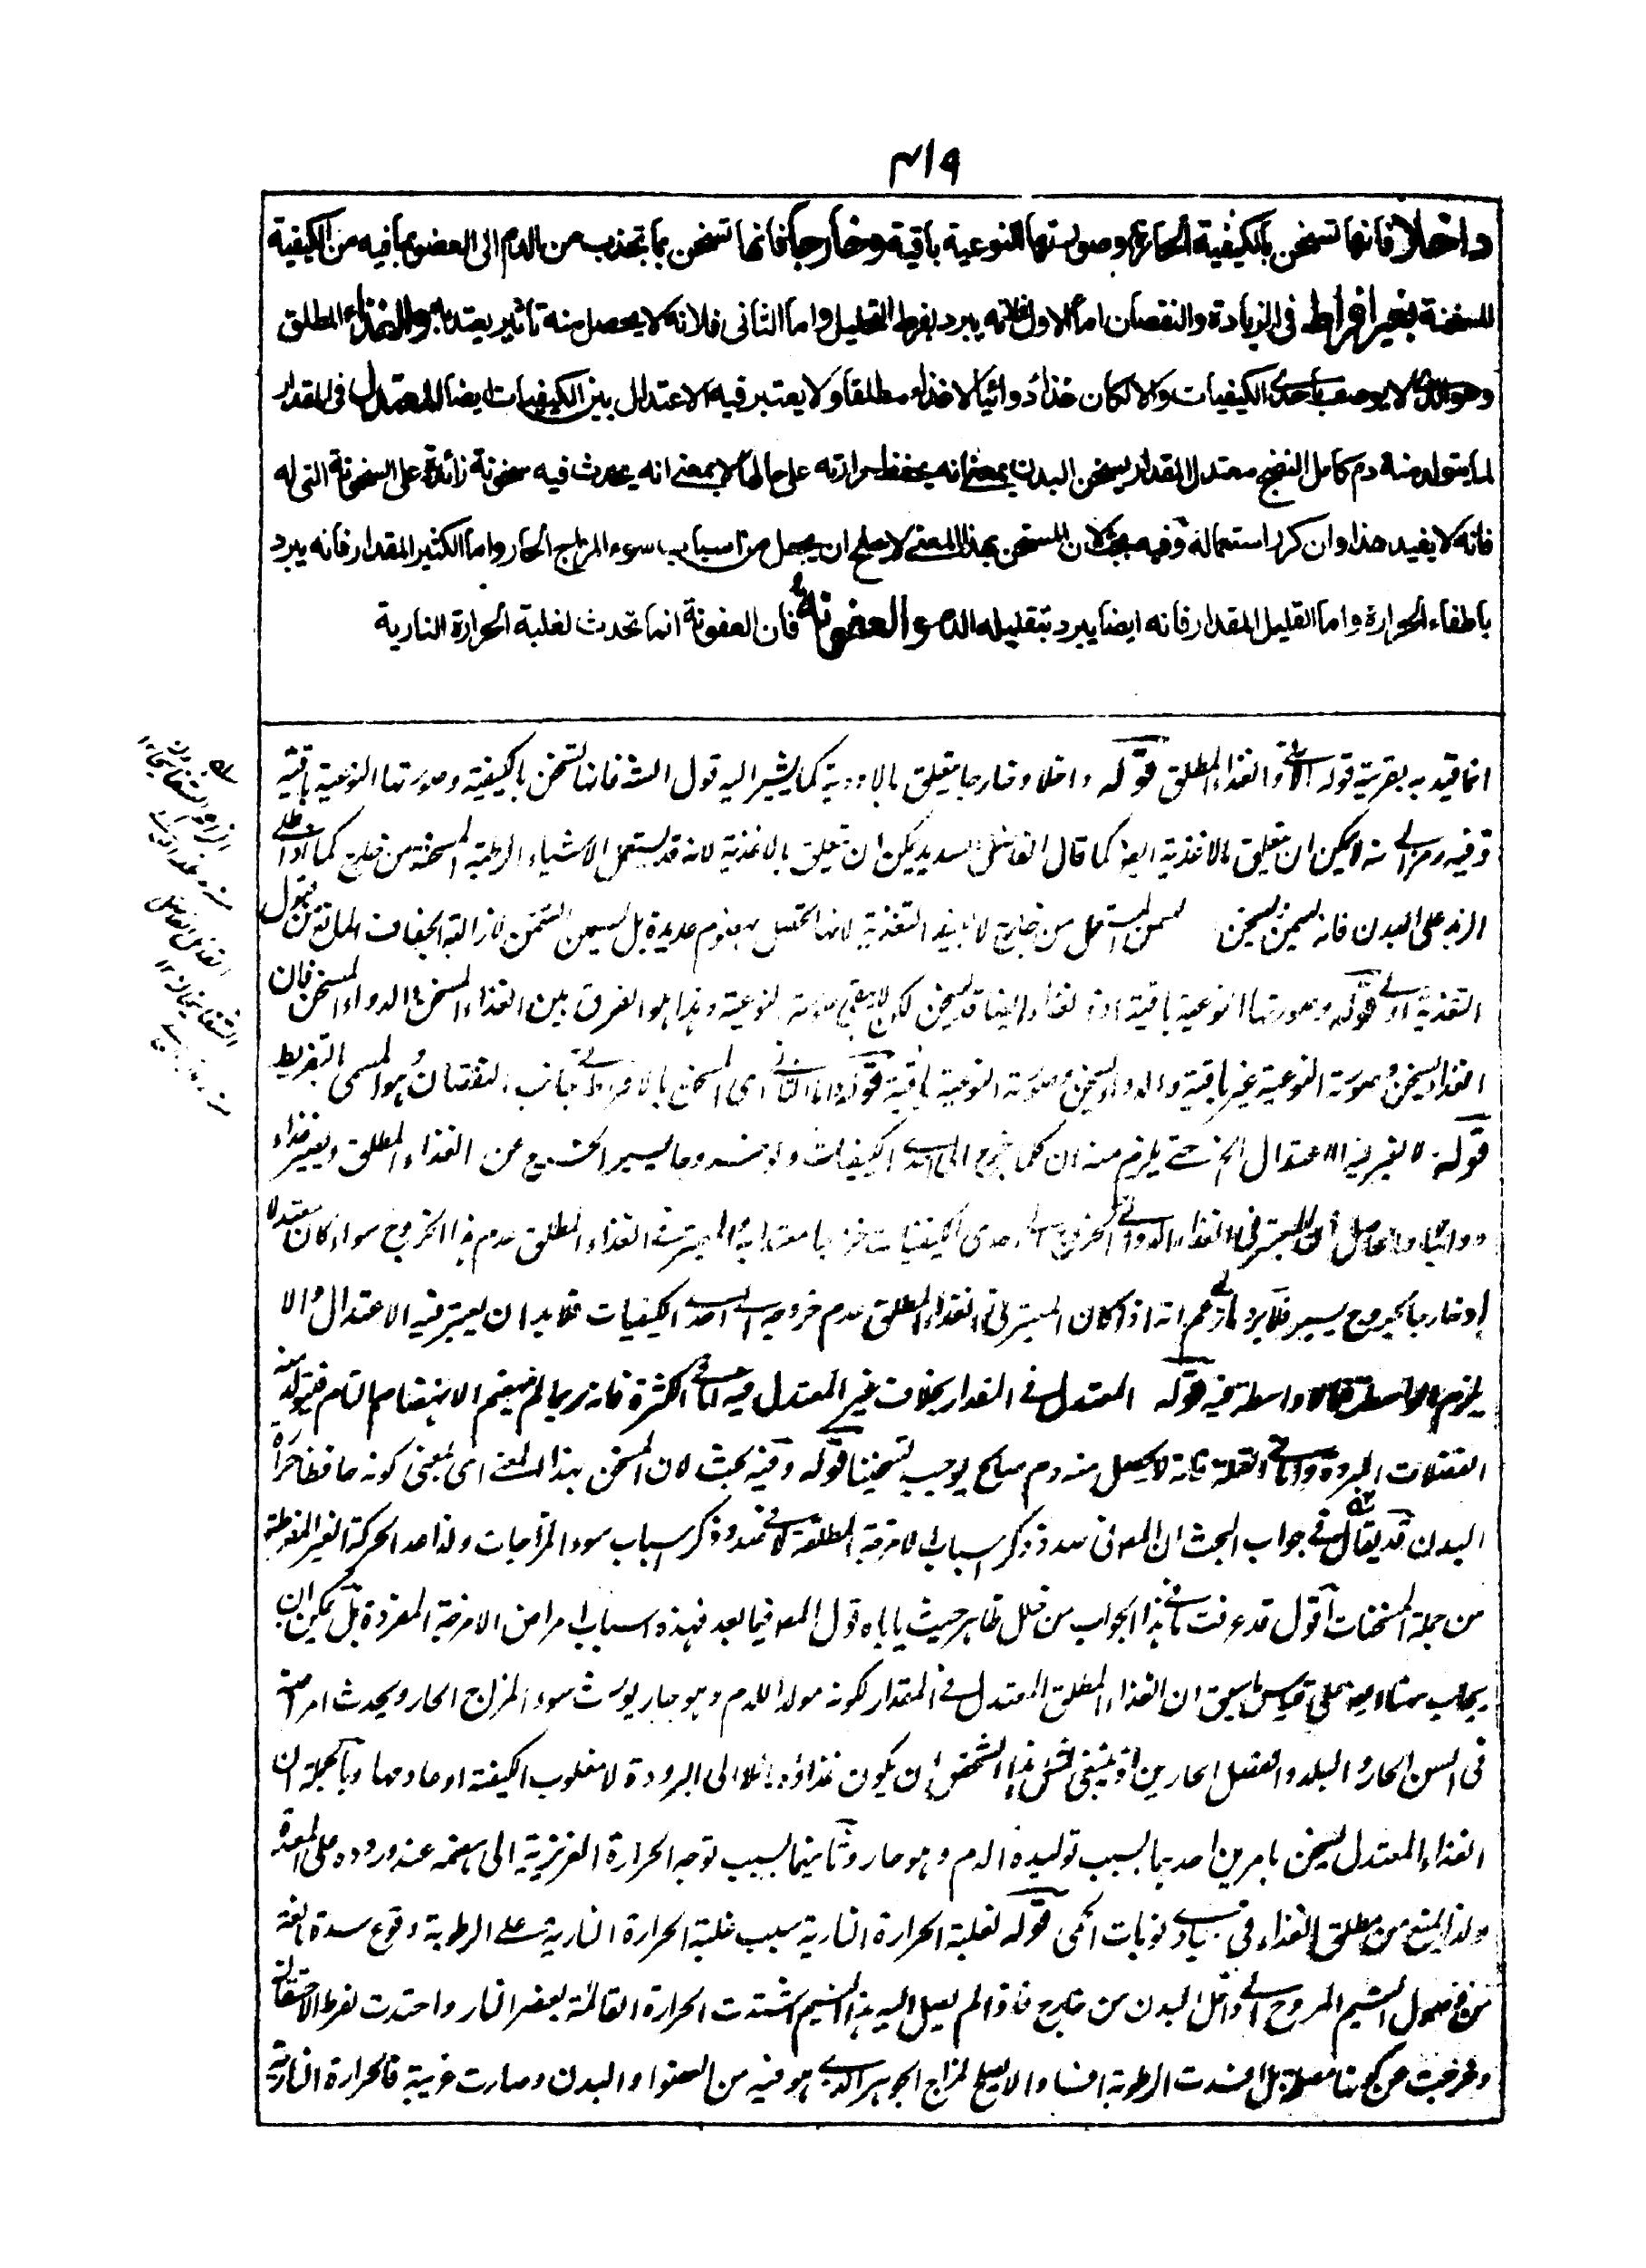 ٤١٩
داخلا فانها تسخن بالكيفية الحارة وصورتها النوعية باقية وخارجا فانها تسخن بما تجذب من الدم الى العضو بما فيه من الكيفية
المسخنة بغير افراط فى الزيادة والنقصان اما الاول فلانه يبرد بفرط التحليل واما الثانى فلانه لا يحصل منه تاثير يعتد به والغذاء المطلق
وهو الذى لا يوصف باحدى الكيفيات والا لكان غذاء دوائيا لا غذاء مطلقا ولا يعتبر فيه الاعتدال بين الكيفيات ايضا المعتدل فى المقدار
لما يتولد منه دم كامل النضج معتدل المقدار يسخن البدن بمعنى انه يحفظ حرارته على حالها لا بمعنى انه يحدث فيه سخونة زائدة على السخونة التى له
فانه لا يفيد هذا وان كرر استعماله وفيه بحث لان المسخن بهذا المعنى لا يصلح ان يجعل من اسباب سوء المزاج الحار واما الكثير المقدار فانه يبرد
باطفاء الحرارة واما القليل المقدار فانه ايضا يبرد بتقليله الدم والعفونة فان العفونة انما تحدث لغلبة الحرارة النارية
انما قيد به بقرينة قوله الآتى والغذاء المطلق قوله داخلا وخارجا متعلق بالادوية كما يشير اليه قول الشه فانها تسخن بالكيفية وصورتها النوعية باقية
وفيه رمز الى انه لا يمكن ان يتعلق بالاغذية ايضا كما قال الفاضل السديد يمكن ان يتعلق بالاغذية لانه قد يستعمل الاشياء الرطبة المسخنة من خارج كما اذا طلى
الزبد على البدن فانه يسمن ويسخن السمن المستعمل من خارج لا يفيد التغذية لانها تحصل بهضوم عديدة بل يسمن السمن لازالته الجفاف المانع من قبول
التغذية اولى قوله وصورتها النوعية باقية اذ الغذاء ايضا قد يسخن لكن لا يبقى صورته النوعية وهذا هو الفرق بين الغذاء المسخن والدواء المسخن فان
الغذاء يسخن وصورته النوعية غير باقية والدواء يسخن وصورته النوعية باقية قوله واما الثانى اى المسخن بالافراط فى جانب النقصان وهو المسمى التفريط
قوله ولا يعتبر فيه الاعتدال الخ حتى يلزم منه ان كلما خرج الى احدى الكيفيات ولو خروجا يسيرا خرج عن الغذاء المطلق ويصير غذاء
دوائيا والحاصل ان المعتبر فى الغذاء الدوائى الخروج الى احدى الكيفيات خروجا معتدا به والمعتبر فى الغذاء المطلق عدم هذا الخروج سواء كان معتدلا
او خارجا بخروج يسير فلا يرد ما زعم انه اذا كان المعتبر فى الغذاء المطلق عدم خروجه الى احدى الكيفيات فلا بد ان يعتبر فيه الاعتدال والا
يلزم الواسطة ولا واسطة فيه قوله المعتدل فى المقدار بخلاف غير المعتدل فيه اما فى الكثرة فانه ربما لم ينهضم الانهضام التام فيتولد منه
الفضلات المبردة واما فى القلة فانه لا يحصل منه دم صالح يوجب تسخينا قوله وفيه بحث لان المسخن بهذا المعنى اى بمعنى كونه حافظا حرارة
البدن قد يقال فى جواب البحث ان المص فى صدد ذكر اسباب الامزجة المطلقة لا فى صدد ذكر اسباب سوء المزاجات ولذا عد الحركة الغير المفرطة
من جملة المسخنات اقول قد عرفت ما فى هذا الجواب من خلل ظاهر حيث ياباه قول المص فيما بعد فهذه اسباب امراض الامزجة المفردة بل يمكن ان
يجاب عنه على قياس ما سبق ان الغذاء المطلق المعتدل فى المقدار لكونه مولدا للدم وهو حار يورث سوء المزاج الحار ويحدث امراضه
فى السن الحار والبلد والفصل الحارين اذ ينبغى لمثل هذا الشخص ان يكون غذاؤه مائلا الى البرودة لا مغلوب الكيفية او عادمها وبالجملة ان
الغذاء المعتدل يسخن بامرين احدهما بسبب توليده الدم وهو حار وثانيهما بسبب توجه الحرارة الغريزية الى هضمه عند وروده على المعدة
ولذا يمنع من مطلق الغذاء فى مبادى نوبات الحمى قوله لغلبة الحرارة النارية سبب غلبة الحرارة النارية على الرطوبة وقوع سدة مانعة
من وصول النسيم المروح الى داخل البدن من خارج فاذا لم يصل اليه هذا النسيم اشتدت الحرارة القائمة بعنصر النار واحتدت لفرط الاحتقان
وخرجت عن كونها مصلحة بل افسدت الرطوبة افسادا لا يصلح لمزاج الجوهر الذى هو فيه من العضو او البدن وصارت غريبة فالحرارة النارية